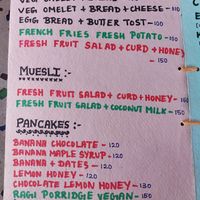 VEG OMELET + BREAD + CHEESE - 110
EGG BREAD + BUTTER TOST - 100
FRENCH FRIES FRESH POTATO - 150
FRESH FRUIT SALAD + CURD + HONEY
- 150
MUESLI :-
FRESH FRUIT SALAD + CURD + HONEY - 160
FRESH FRUIT SALAD + COCONUT MILK - 150
PANCAKES :-
BANANA CHOCOLATE - 120
BANANA MAPLE SYRUP - 120
BANANA + DATES - 120
LEMON HONEY - 120
CHOCOLATE LEMON HONEY - 130
RAGI PORRIDGE VEGAN - 150